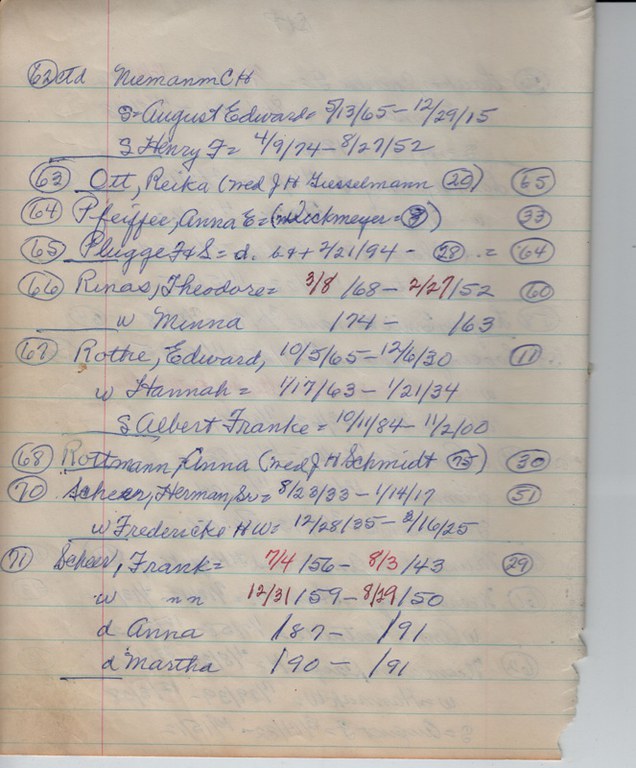 (62) ctd Niemann CH
S = August Edward = 5/13/65 - 12/29/15
S Henry F = 4/9/74 - 8/27/52
(63) Ott, Reika (med J H Giesselmann (20)) (65)
(64) Pfeiffer, Anna E = (m Dickmeyer = ) (33)
(65) Plugge F & S = d. 2/21/94 - (28) = (64)
(66) Rinas, Theodore = 3/8/68 - 2/27/52 (60)
w Minna /74 - /63
(67) Rothe, Edward, 10/5/65 - 12/6/30 (11)
w Hannah = 1/17/63 - 1/21/34
S Albert Franke = 10/11/84 - 11/2/00
(68) Rottmann, Anna (med J H Schmidt (75)) (30)
(70) Scheer, Herman, Sr = 8/23/33 - 1/14/17 (51)
w Fredericke HW = 12/28/35 - /16/25
(71) Scheer, Frank = 7/4/56 - 8/3/43 (29)
w nn 12/31/59 - 8/29/50
d Anna /87 - /91
d Martha /90 - /91